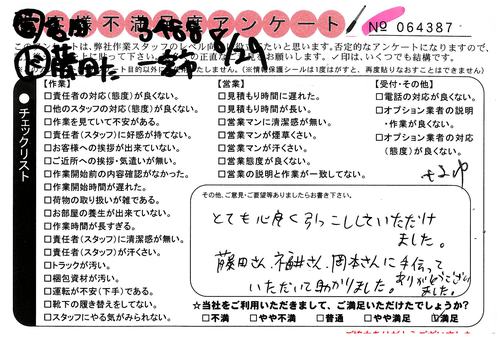 お客様不満足度アンケート
No 064387
8/29
このアンケートは、弊社作業スタッフのレベル向上に役立てたいと思います。否定的なアンケートになりますので、
お願いします。✓印は、いくつでも結構です。
目的以外に(※情報保護シールは1度はがすと、再度貼りなおすことはできません)
チェックリスト
【作業】
□責任者の対応(態度)が良くない。
□他のスタッフの対応(態度)が良くない。
□作業を見ていて不安がある。
□責任者(スタッフ)に好感が持てない。
□お客様への挨拶が出来ていない。
□ご近所への挨拶・気遣いが無い。
□作業開始前の内容確認がなかった。
□作業開始時間が遅れた。
□荷物の取り扱いが雑である。
□お部屋の養生が出来ていない。
□作業時間が長すぎる。
□責任者(スタッフ)に清潔感が無い。
□責任者(スタッフ)が汗くさい。
□トラックが汚い。
□梱包資材が汚い。
□運転が不安(下手)である。
□靴下の履き替えをしてない。
□スタッフにやる気がみられない。
【営業】
□見積もり時間に遅れた。
□見積もり時間が長い。
□営業マンに清潔感が無い。
□営業マンが煙草くさい。
□営業マンが汗くさい。
□営業態度が良くない。
□営業の説明と作業が食い違う。
【受付・その他】
□電話の対応が良くない。
□オプション業者の説明
・作業が良くない。
□オプション業者の対応
(態度)が良くない。
その他、ご意見・ご要望等ありましたらお書き下さい。
とても心良く引っこししていただけ
ました。
藤田さん、福井さん、岡本さんに手伝って
いただいて助かりました。ありがとうございました。
☆当社をご利用いただきまして、ご満足いただけたでしょうか?
□不満 □やや不満 □普通 □やや満足 ☑満足